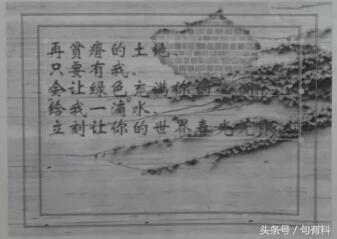 再贫瘠的土地、
只要有我、
会让绿色充满你的
给我一滴水、
立刻让你的世界春光无限
头条号／句有科